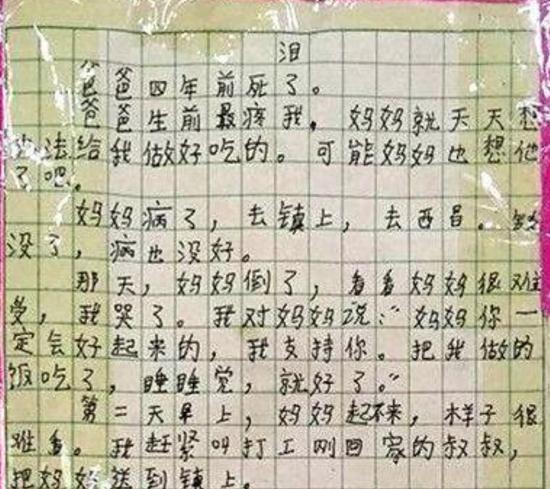 泪
爸爸四年前死了。
爸爸生前最疼我，妈妈就天天想
办法给我做好吃的。可能妈妈也想他
了吧。
妈妈病了，去镇上，去西昌。钱
没了，病也没好。
那天，妈妈倒了，看看妈妈很难
受，我哭了。我对妈妈说：“妈妈你一
定会好起来的，我支持你。把我做的
饭吃了，睡睡觉，就好了。”
第二天早上，妈妈起不来，样子很
难看。我赶紧叫打工刚回家的叔叔，
把妈妈送到镇上。